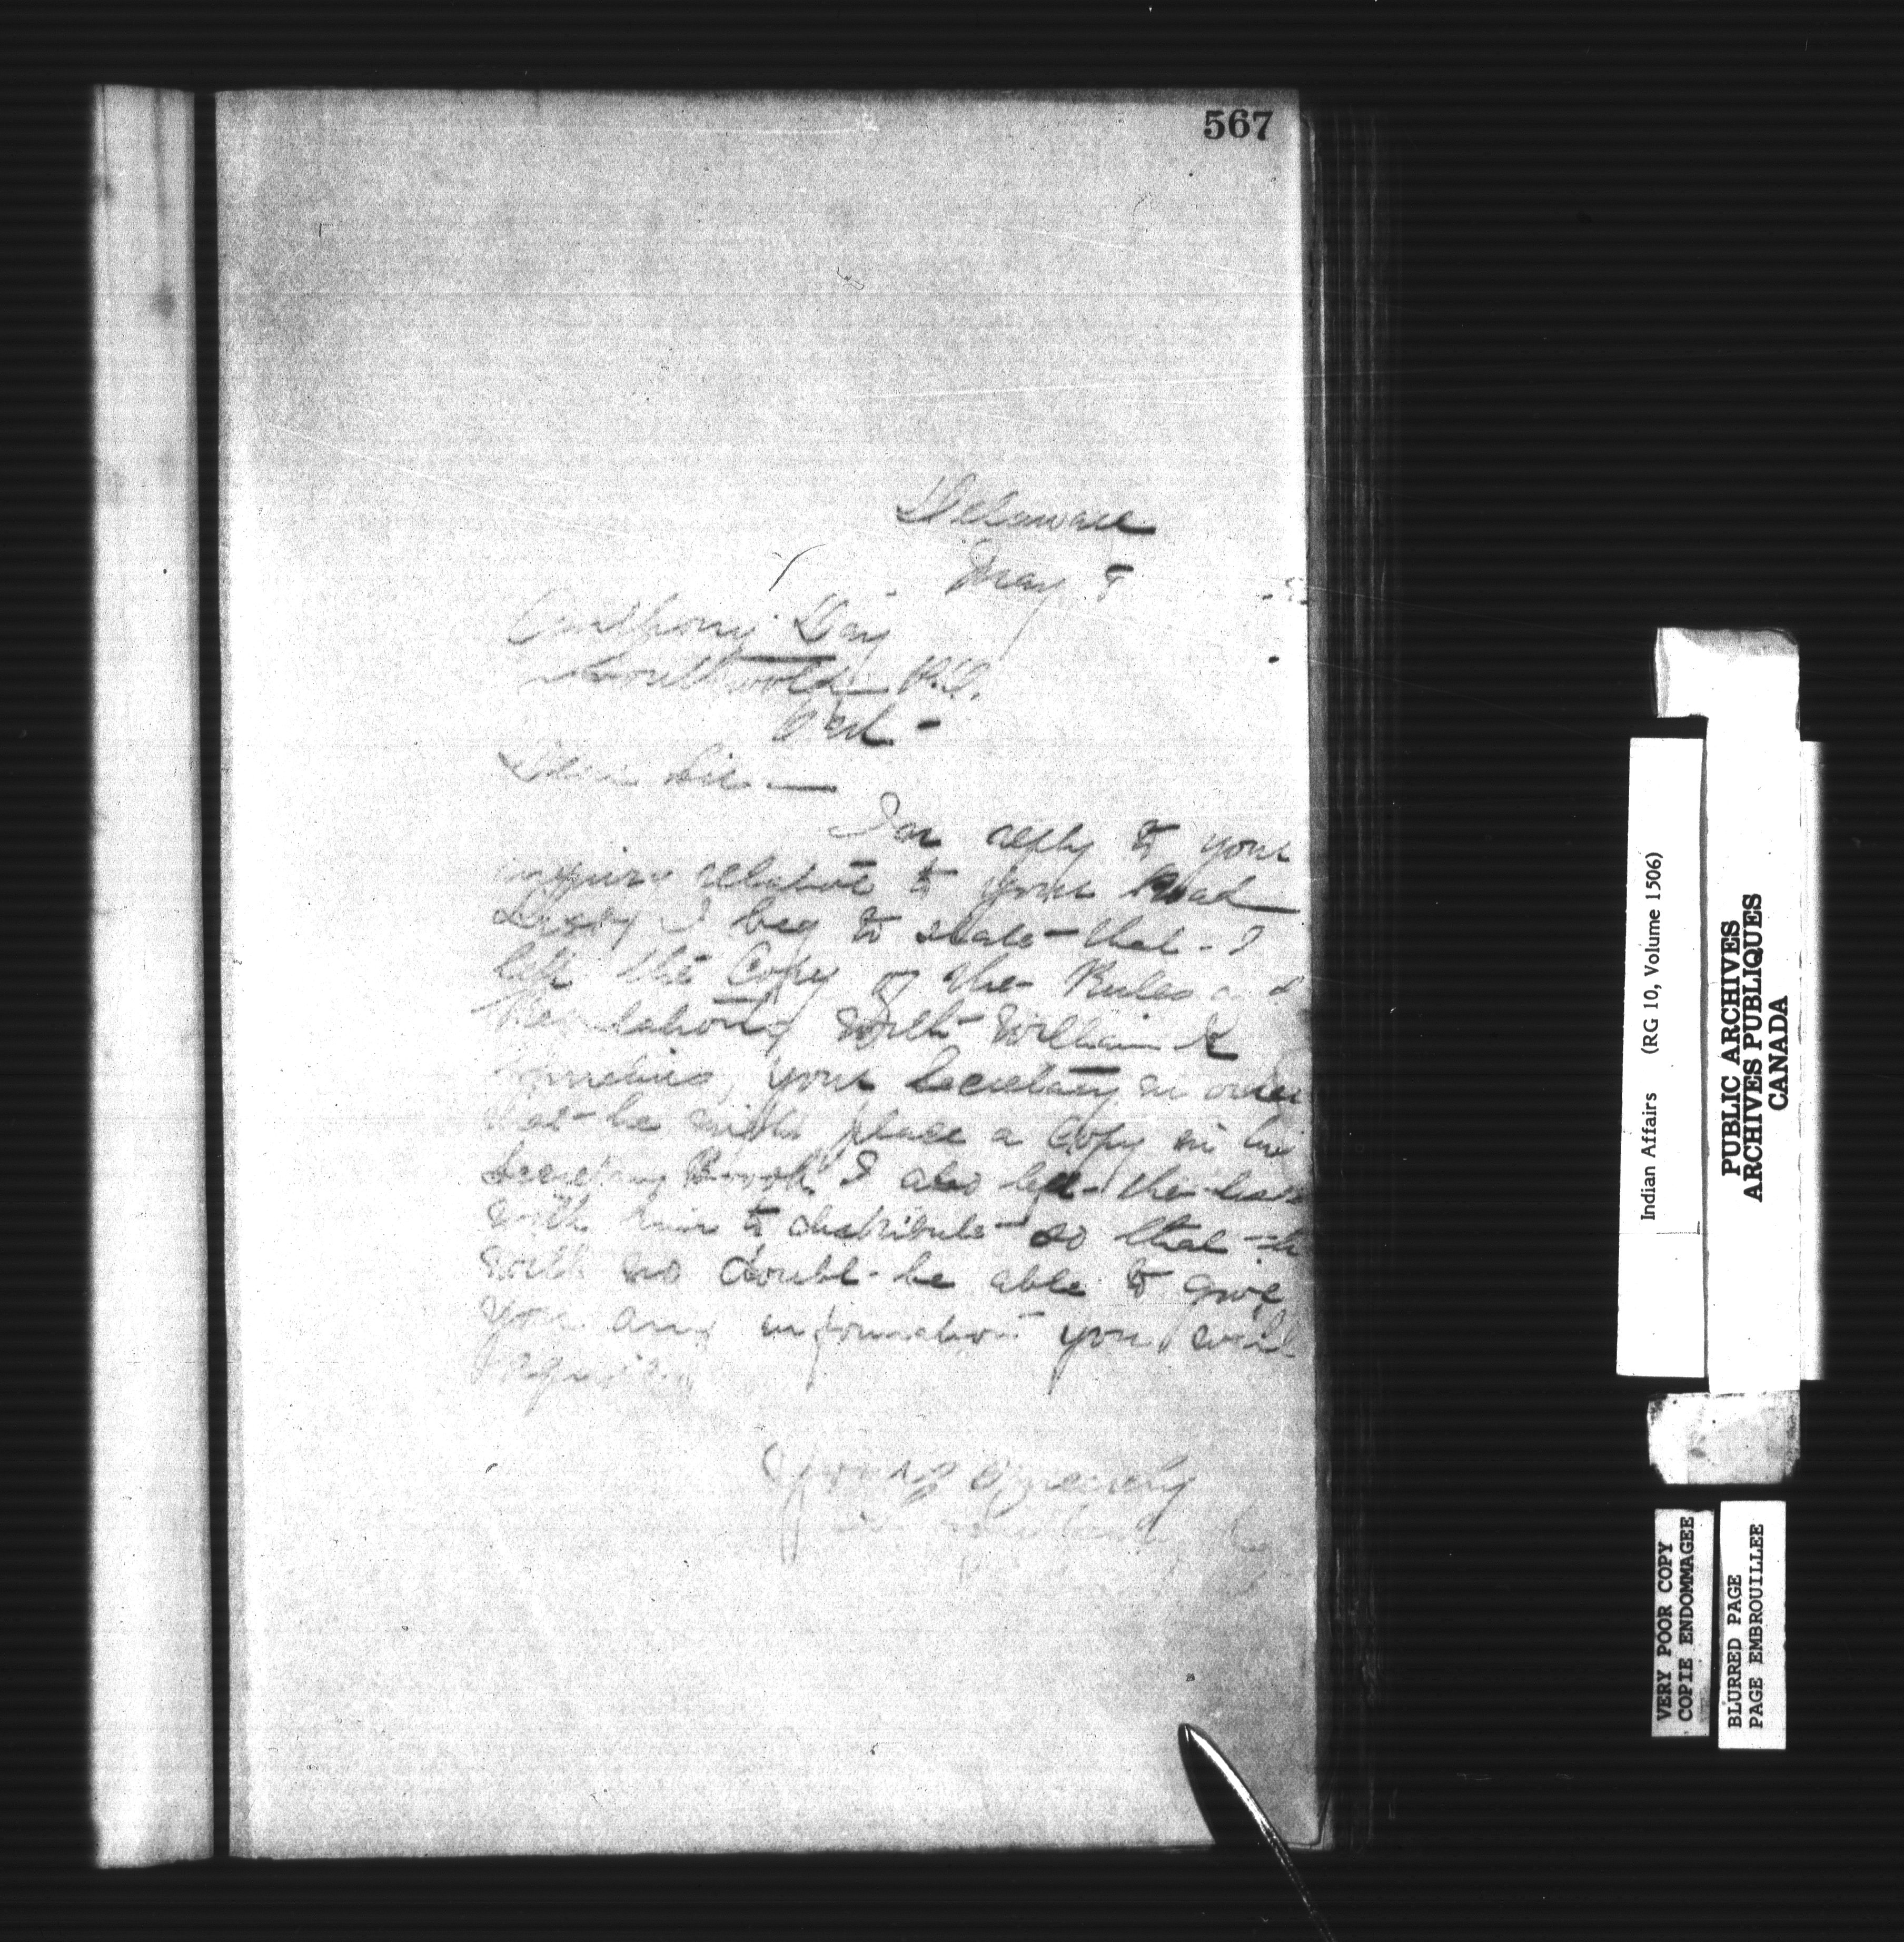 567
Delaware
May 8
Anthony Day
Southwold P.O.
Ont -
Dear Sir —
In reply to your
inquiry relative to your Road
I beg to state that I
left the Copy of the Rules and
Regulations with William K
Cornelius, your Secretary in order
that he might place a Copy in his
Secretary Book I also left the
with him to distribute so that he
will no doubt be able to give
you any information you will
require
Yours Sincerely
Indian Affairs (RG 10, Volume 1506)
PUBLIC ARCHIVES
ARCHIVES PUBLIQUES
CANADA
VERY POOR COPY
COPIE ENDOMMAGEE
BLURRED PAGE
PAGE EMBROUILLEE